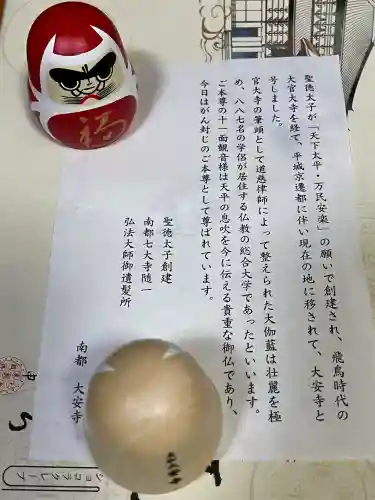 聖徳太子が「天下太平・万民安楽」の願いで創建され、飛鳥時代の
大官大寺を経て、平城京遷都に伴い現在の地に移されて、大安寺と
号しました。
官大寺の筆頭として道慈律師によって整えられた大伽藍は壮麗を極
め、八八七名の学侶が居住する仏教の総合大学であったといいます。
ご本尊の十一面観音様は天平の息吹を今に伝える貴重な御仏であり、
今日はがん封じのご本尊として尊ばれています。
聖徳太子創建
南都七大寺随一
弘法大師御遺髪所
南都 大安寺
福
ショコラクレープ